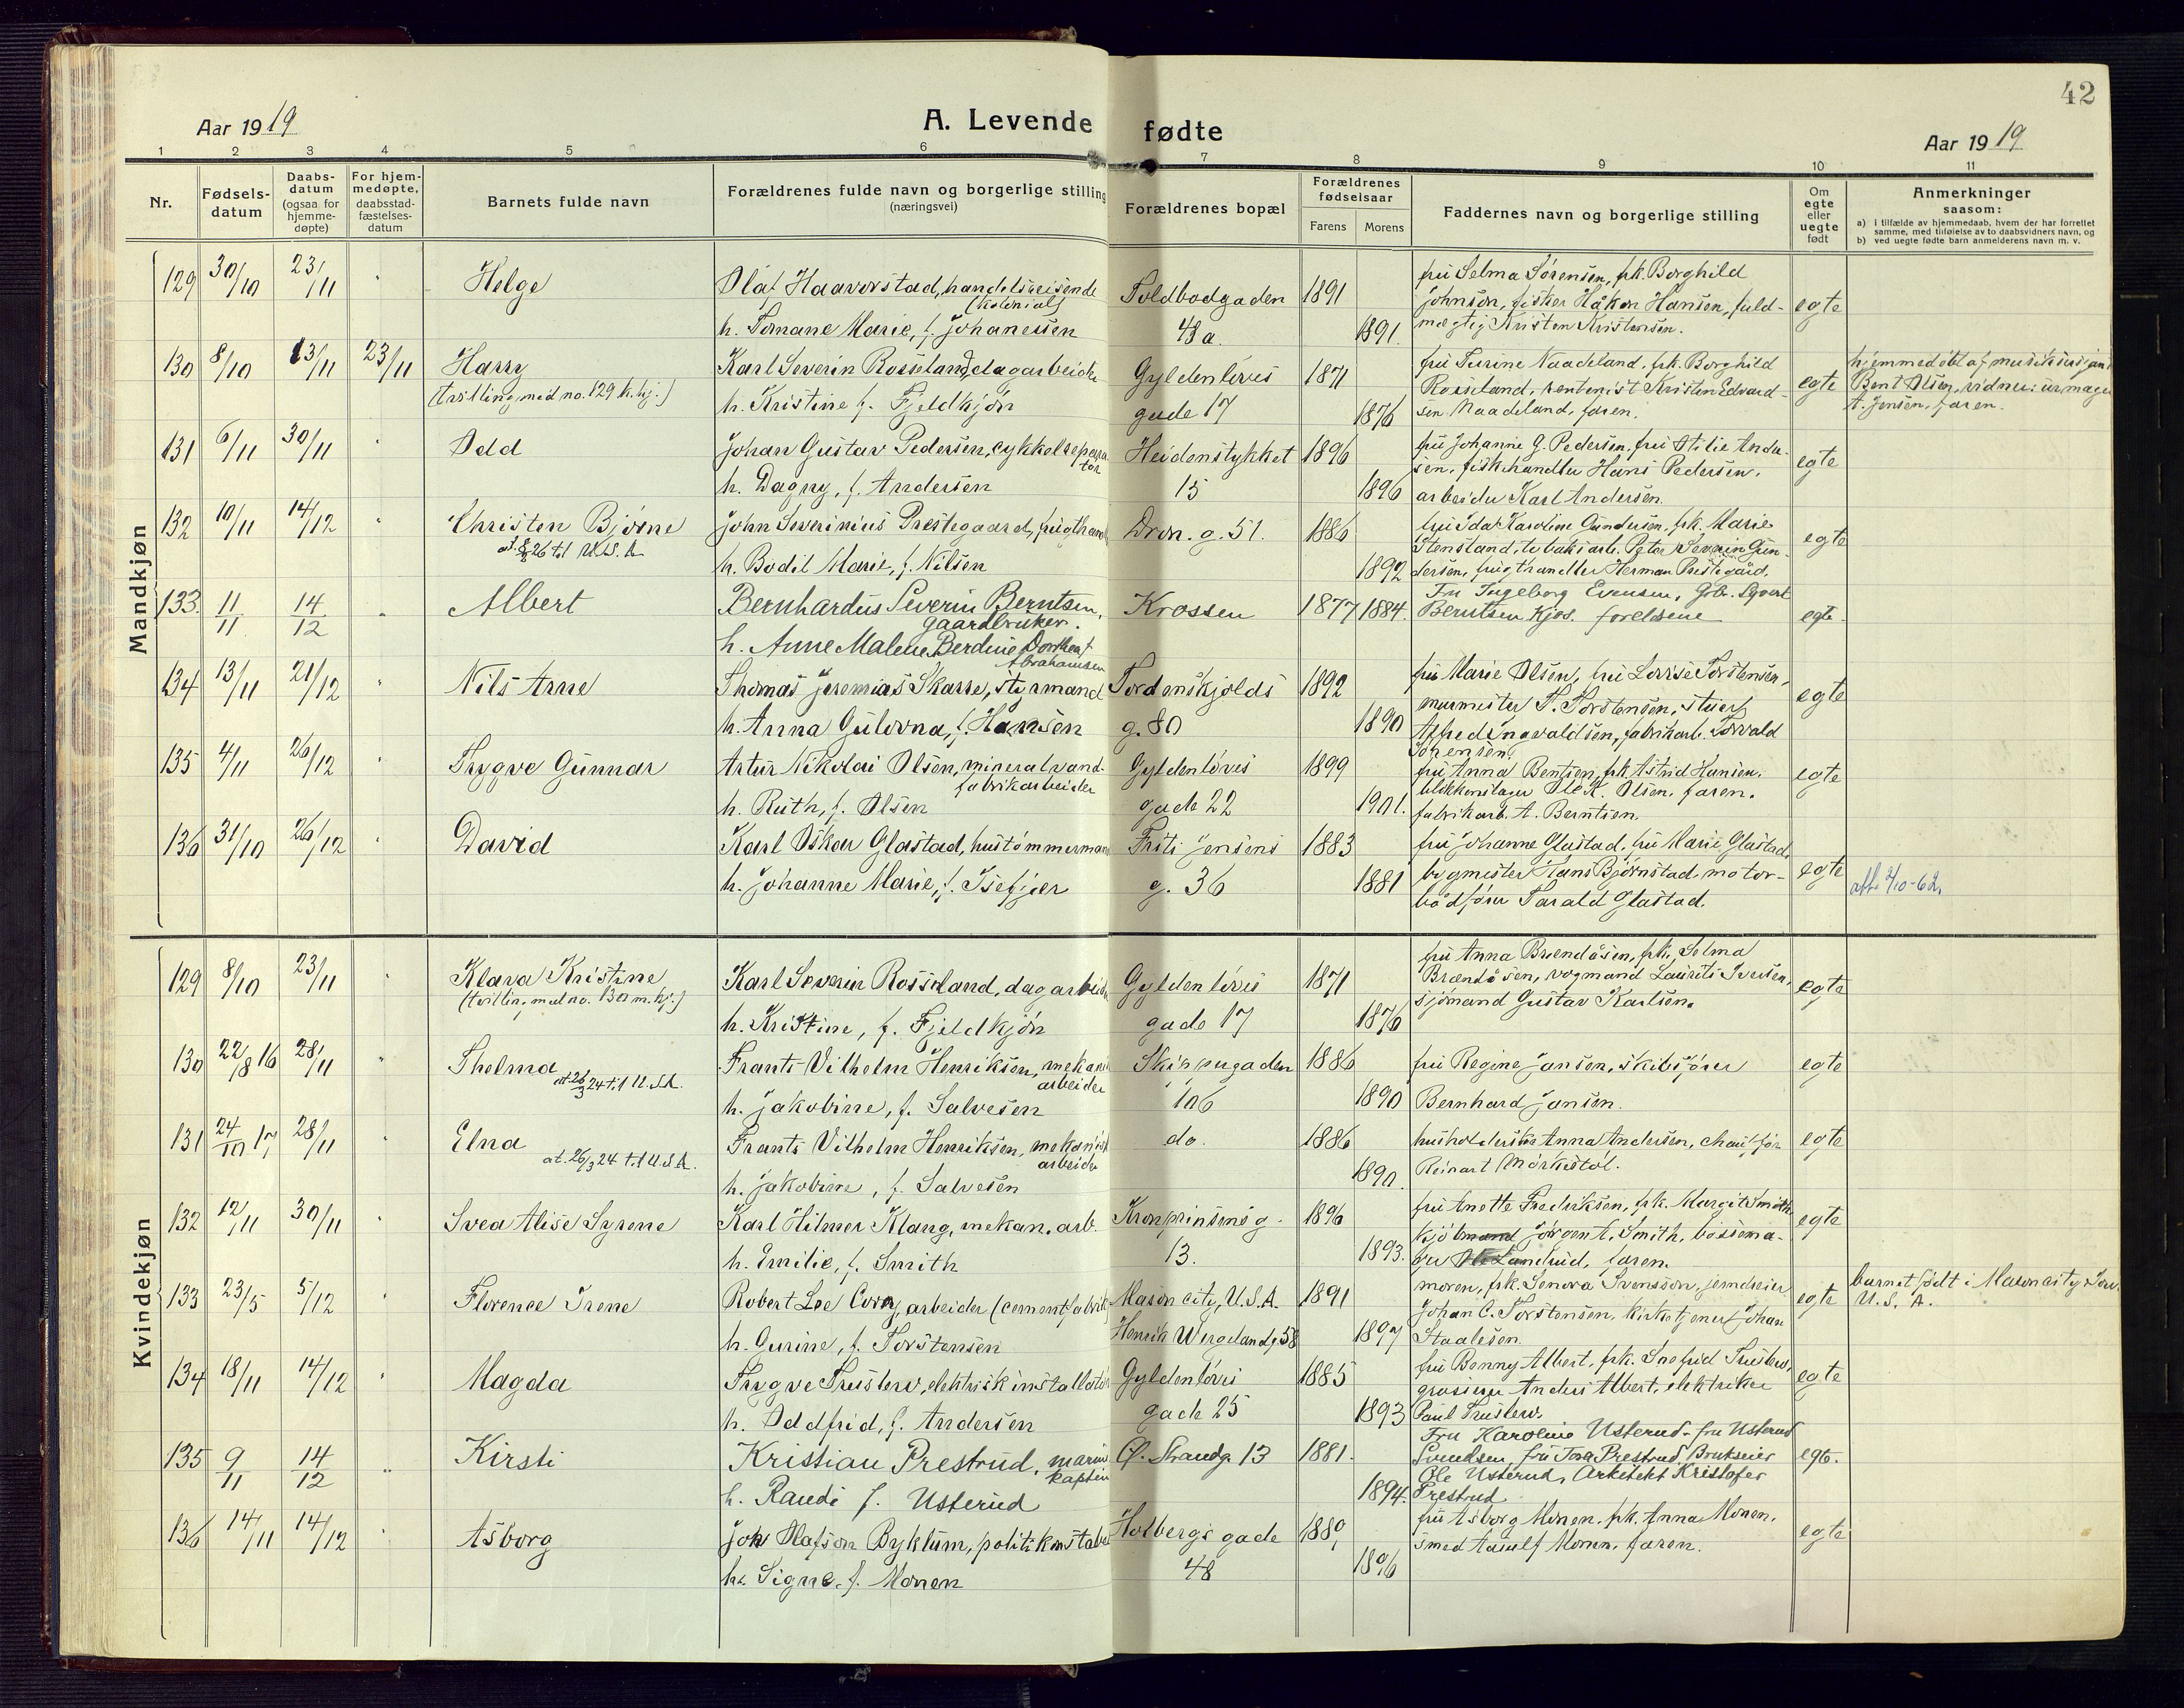 42
Aar 1919
A. Levende fødte
Aar 1919
1 2 3 4 5 6 7 8 9 10 11
Nr.
Fødsels-
datum
Daabs-
datum
(ogsaa for
hjemme-
døpte)
For hjem-
medøpte,
daabsstad-
fæstelses-
datum
Barnets fulde navn
Forældrenes fulde navn og borgerlige stilling
(næringsvei)
Forældrenes bopæl
Forældrenes
fødselsaar
Farens Morens
Faddernes navn og borgerlige stilling
Om
egte
eller
uegte
født
Anmerkninger
saasom:
a) i tilfælde av hjemmedaab, hvem der har forrettet
samme, med tilføielse av to daabsvidners navn, og
b) ved uegte fødte barn anmelderens navn m. v.
Mandkjøn
129 30/10 23/11 Helge
Olaf Haavorstad, handelsreisende
(kolonial)
h. Tomane Marie, f. Johanessen
Toldbodgaden
48a.
1891 1891.
fru Selma Sørensen, frk. Borghild
Johnson, fisker Håkon Hansen, fuld-
mægtig Kristen Kristensen.
egte
130 8/10 13/11 23/11 Harry
(tvilling med no. 129 k.kj.)
Karl Severin Rosseland, dagarbeider
h. Kristine f. Fjeldkjøn
Gyldenløves
gade 17
1871 1876
fru Turine Naadeland, frk. Borghild
Rosseland, rentenist Kristen Edvard-
sen Naadeland, faren.
egte
hjemmedøbt af
Bent Olsen, vidner: urmager
A. Jensen, faren.
131 6/11 30/11 Odd
Johan Gustav Pedersen, cykkelrepara-
tør
h. Dagny, f. Andersen
Heidenstykket
15
1896 1896
fru Johanne G. Pedersen, fru Otilie Ander-
sen, fiskehandler Hans Pedersen,
arbeider Karl Andersen.
egte
132 10/11 14/12 Christen Bjørne
26 t.l U.S.A
John Severinius Prestegaard, frugthand
h. Bodil Marie, f. Nilsen
Dron. g. 51.
1886 1892
fru Ida Karoline Gundersen, frk. Marie
Stensland, tobaksarb. Peter Severin Gun-
dersen, frugthandler Herman Prestegård.
egte
133. 11/11 14/12 Albert
Bernhardus Severin Berntsen,
gaardbruker.
h. Anne Malene Berdine Dorthea f.
Abrahamsen
Krossen
1877 1884.
Fru Ingeborg Evensen, Gbr. Sigvart
Berntsen Kjos. foreldrene
egte.
134 13/11 21/12 Nils Arne
Thomas Jeremias Skarre, styrmand
h. Anna Gulovna, f. Hansen
Tordenskjolds
g. 80
1892 1890
fru Marie Olsen, fru Lovise Torstensen,
murmester T. Torstensen, stuer
Alfred Ingvaldsen, fabrikarb. Torvald
Sørensen.
egte
135 4/11 26/12 Trygve Gunnar
Artur Nikolai Olsen, mineralvand-
fabrikarbeider
h. Ruth, f. Olsen
Gyldenløves
gade 22
1899 1901.
fru Anna Bentsen, frk. Astrid Hansen,
blikkenslager Ole K. Olsen, faren,
fabrikarb. A. Berntsen.
egte
136 31/10 26/12 David
Karl Oskar Glastad, hustømmermand
h. Johanne Marie, f. Isefjær
Frits Jensens
g. 36
1883 1881
fru Johanne Glastad, fru Marie Glastad,
bygmester Hans Bjørnstad, motor-
bådfører Tarald Glastad.
egte
att. 2/10-62.
Kvindekjøn
129 8/10 23/11 Klara Kristine
(tvilling med no. 130 m.kj.)
Karl Severin Rosseland, dagarbeider
h. Kristine, f. Fjeldkjøn
Gyldenløves
gade 17
1871 1876
fru Anna Brændåsen, frk. Selma
Brændåsen, vognmand Laurits Iversen,
sjømand Gustav Karlsen.
egte
130 22/8 16 28/11 Thelma
at. 26/3 24 t.l U.S.A.
Frants Vilhelm Henriksen, mekanisk
arbeider
h. Jakobine, f. Salvesen
Skippergaden
106
1886 1890
fru Regine Jansen, skibsfører
Bernhard Jansen.
egte
131 24/10 17, 28/11 Elna
at. 26/3 24 t.l U.S.A.
Frants Vilhelm Henriksen, mekanisk
arbeider
h. Jakobine, f. Salvesen
do.
1886 1890.
husholderske Anna Andersen, chauffør
Reinart Mørkestøl.
egte
132 12/11 30/11 Svea Alise Syrene
Karl Hilmer Klang, mekan. arb.
h. Emilie, f. Smith
Kronprinsens g.
13.
1896 1893.
fru Anette Fredriksen, frk. Margit Smith
kjøbmand Jørgen A. Smith, bøssema-
ger Landrud, faren.
egte
133 23/5 5/12 Florence Irene
Robert Lee Corn, arbeider (cementfabrik)
h. Gurine, f. Torstensen
Mason city, U.S.A.
Henrik Wergelands g. 58
1891 1897
moren, frk. Senora Svensson, jerndreier
Johan C. Torstensen, kirketjener Johan
Staalesen.
egte
barnet født i Mason city
U.S.A.
134 18/11 14/12 Magda
Trygve Truslew, elektrisk installatør
h. Oddfrid, f. Andersen
Gyldenløves
gade 25
1885 1893
fru Benny Albert, frk. Snefrid Truslew,
grosserer Anders Albert, elektriker
Paul Truslew.
egte
135 9/11 14/12 Kirsti
Kristian Prestrud, marine
kaptein
h. Randi f. Usterud
Ø. Strandg. 13
1881. 1894.
Fru Karoline Usterud - fru Usterud
Svendsen, fru Tora Prestrud, Brukseier
Ole Usterud, Arkitekt Kristofer
Prestrud
egte.
136 14/11 14/12 Asborg
Jon Olafson Byklum, politikonstabel
h. Signe, f. Monen
Holbergs gade
48
1889 1896
fru Asborg Monen, frk. Anna Monen,
smed Aanulf Monen, faren.
egte